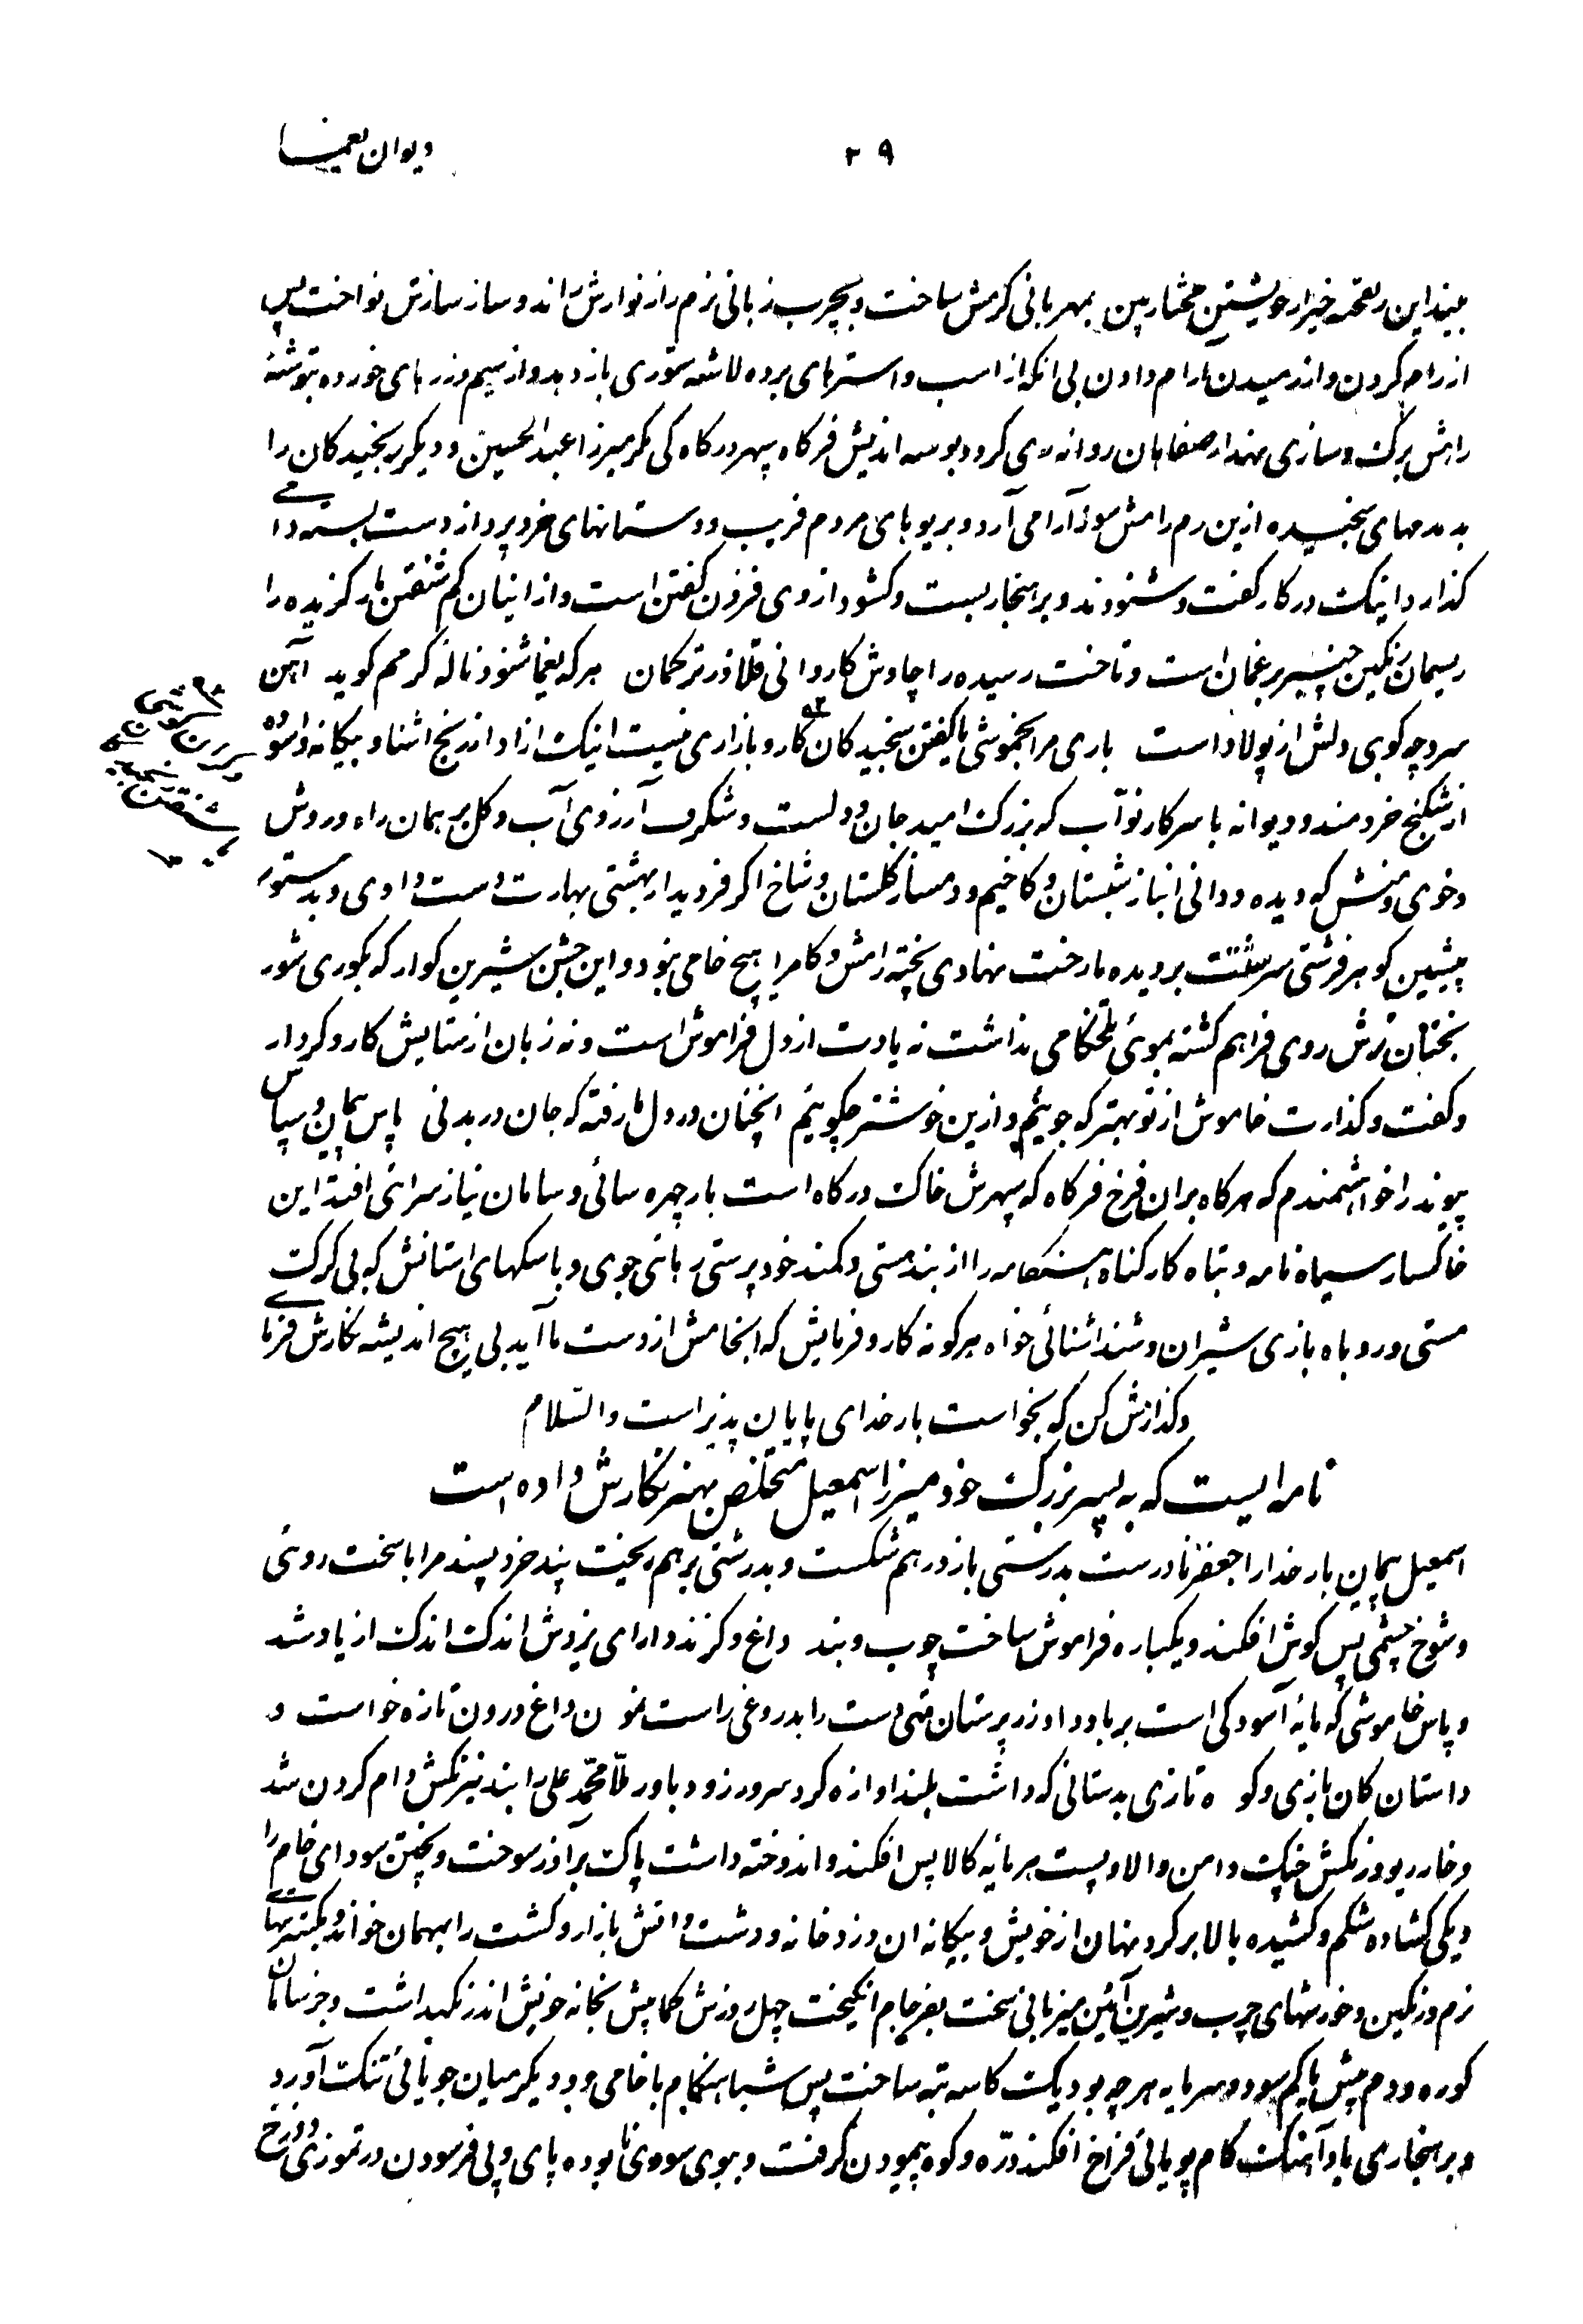 دیوان یغما
۲۹
بیند این رقعه خیز از خویشتن مختار پس بمهربانی گرمش ساخت و بچرب زبانی نرم راز نوازش راند و ساز سازش نواخت پس
از رام کردن و از رمیدن آرام دادن بی آنکه از اسب و استرهای برده لاشه ستوری باز دهد و از سیم و زرهای خورده بتوشهٔ
راهش برگ و سازی نهد از صفاهان روانه ری کرد و بوسه اندیش فرگاه سپهر درگاه کی مگر میرزا عبدالحسین و دیگر رنجیدگان را
بدمدمهای سنجیده ازین رم رامش سوز آرامی آرد و بریوهای مردم فریب و دستانهای خرد پرداز دست بسته وا
گذارد اینک در کار گفت و شنودند و بر هنجار بست و گشود از وی فزون گفتن است و از اینان کم شنفتن مار گزیده را
ریسمان رنگین چنبر غمان است و تاخت رسیده را چاوش کاروانی قلاوز ترکمان هر که یغما شنود ناله گرمم گوید آهن
سرد چه کوبی دلش از پولاد است باری مرا بخموشی یا گفتن سنجیدگان کار و بازاری نیست اینک آزاد از رنج آشنا و بیگانه و آسوده
از شکنج خردمند و دیوانه با سرکار نواب که بزرگ امید جان و دلست و شگرف آرزوی آب و گل بر همان راه و روش
و خوی و منش که دیده و دانی انباز شبستان و کاخیم و دمساز گلستان و شاخ اگر فر دیدار بهشتی بهارت دست دادی و بدستور
پیشین گوهر فرشتی سرشتت بر دیده ما رخت نهادی پخته رامش و کام را هیچ خامی نبود و این جشن شیرین گوار که بکوری شور
بختان ترش روی فراهم گشته بموئی تلخکامی نداشت نه یادت از دل فراموش است و نه زبان از ستایش کار و کردار
و گفت و گذارت خاموش از تو بهتر که جوئیم و ازین خوشتر چگوئیم آنچنان در دل ما رفته که جان در بدنی پاس پیمان و سپاس
پیوند را خواهشمندم که هر گاه بران فرخ فرگاه که سپهرش خاک درگاه است بار چهره سائی و سامان نیاز سرائی افتد این
خاکسار سیاه نامه و تباه کار گناه هنگامه را از بند مستی و کمند خود پرستی رهائی جوی و با سگهای آستانش که بی گرگ
مستی و روباه بازی شیران و شند آشنائی خواه هر گونه کار و فرمایش که انجامش از دست ما آید بی هیچ اندیشه نگارش فرمای
و گذارش کن که بخواست بار خدای پایان پذیر است والسلام
نامه ایست که به پسر بزرگ خود میرزا اسمعیل متخلص بهنر نگارش داده است
اسمعیل پیمان بار خدا را جعفر نادرست بدرستی باز در هم شکست و بدرشتی بر هم ریخت پند خرد پسند مرا با سخت روئی
و شوخ چشمی پس گوش افکند و یکباره فراموش ساخت چوب و بند داغ و گزند دارای یزدش اندک اندک از یاد شد
و پاس خاموشی که مایه آسودگی است بر باد داد و زر پرستان تهی دست را بدروغی راست نمون داغ درون تازه خواست و
داستان کان بازی و کوه تازی بدستانی که داشت بلند آوازه کرد سرور زود باور ملا محمد علی را بند نیرنگش دام گردن شد
و خار ریو و رنگش خپک دامن والا و پست هر مایه کالا پس افکند و اندوخته داشت پاک بر آذر سوخت و پختن سودای خام را
دیگی گشاده شکم و کشیده بالا بر کرد نهان از خویش و بیگانه آن دزد خانه و دشت و آتش بازار و کشت را بمهمان خواند و بگسترنهای
نرم و رنگین و خورشهای چرب و شیرین آئین میزبانی سخت بفرجام انگیخت چهل روزش کمابیش بخانه خویش اندر نگهداشت و جز سامان
کوره و دم بیش یا کم سود و سرمایه هر چه بود یکاسه تبه ساخت پس شباهنگام با خامی دو دیگر میان جویائی تنگ آورد
و بر هنجاری باد آهنگ گام پویائی فراخ افکند درّه و کوه پیمودن گرفت و ببوی سودی نابوده پای و پی فرسودن در تموزی دوزخ